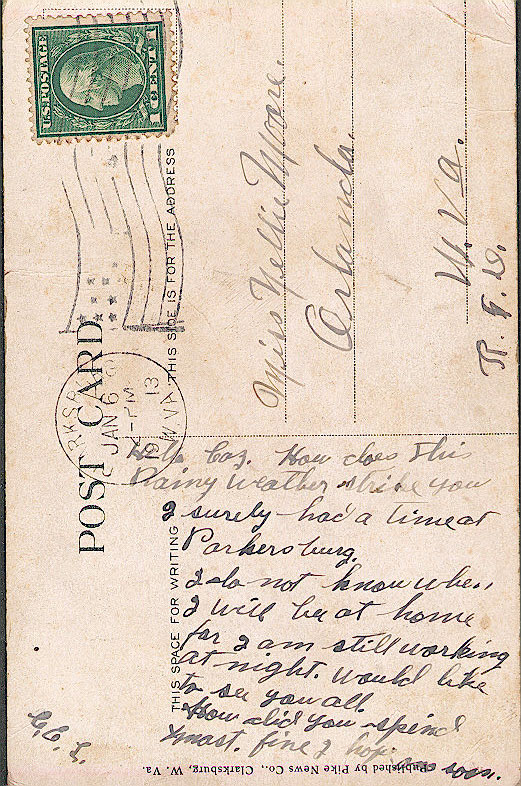 U.S. POSTAGE
1 CENT 1
CLARKSBURG
JAN 6
-PM
1913
W.VA.
POST CARD
THIS SPACE FOR WRITING
THIS SIDE IS FOR THE ADDRESS
Miss Nellie Moore.
Orlando.
W.Va.
R. F. D.
Hello Coz. How does this
Rainy Weather strike you
I surely had a time at
Parkersburg.
I do not know when
I will be at home
for I am still working
at night. Would like
to see you all.
How did you spend
Xmast. fine I hope
soon.
C. C. L.
Published by Pike News Co., Clarksburg, W. Va.